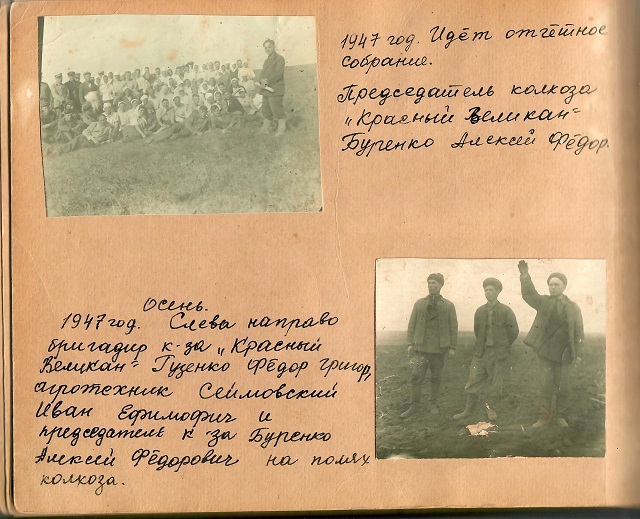 1947 год. Идёт отчётное
собрание.
Председатель колхоза
„Красный Великан=
Буренко Алексей Фёдор.
Осень.
1947 год. Слева направо
бригадир к-за „Красный
Великан= Гузенко Фёдор Григор,
агротехник Сеймовский
Иван Ефимофич и
председатель к-за Буренко
Алексей Фёдорович на полях
колхоза.